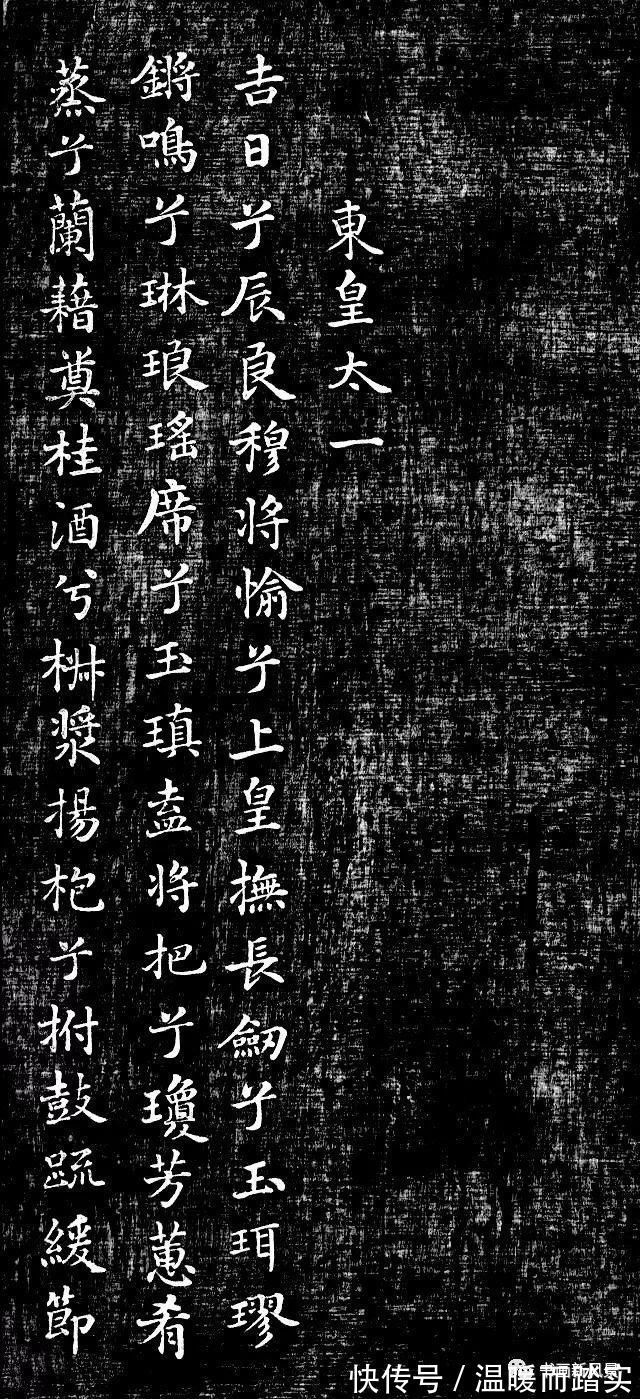 東皇太一
吉日兮辰良穆将愉兮上皇撫長劒兮玉珥璆
鏘鳴兮琳琅瑤席兮玉瑱盍将把兮瓊芳蕙肴
蒸兮蘭藉奠桂酒兮椒漿揚枹兮拊鼓疏緩節
书画新风景
快传号 / 温暖而踏实